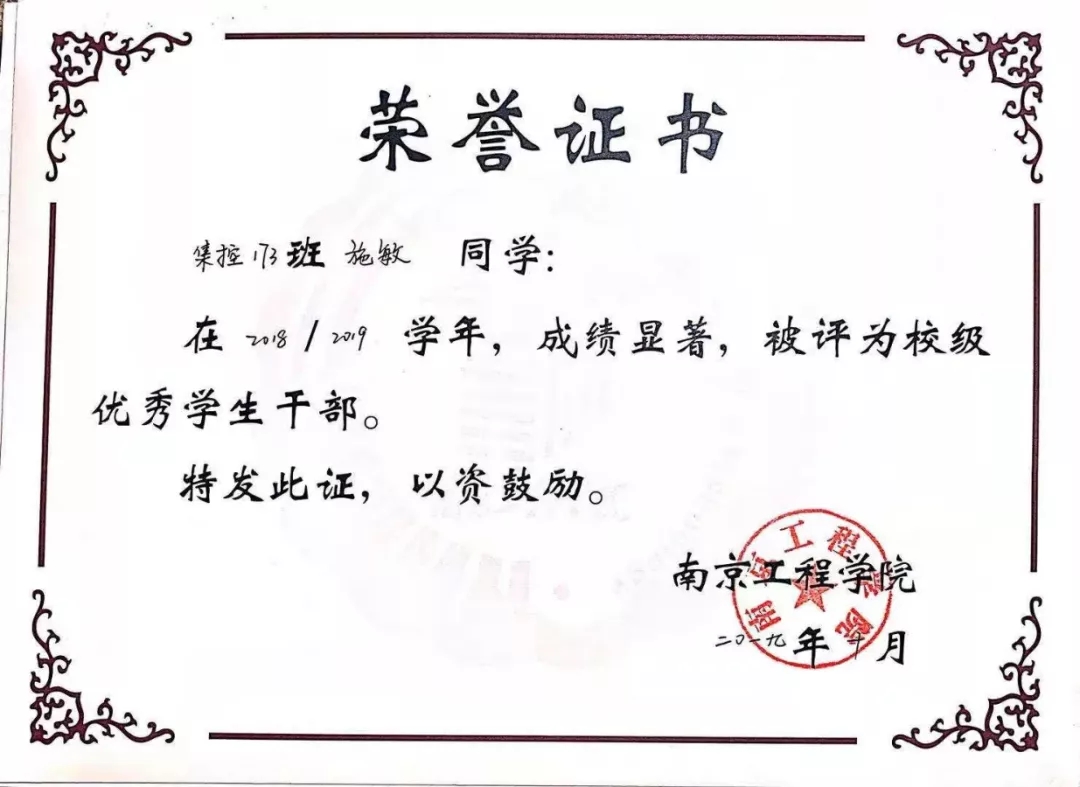 荣誉证书
集控173班 施敏 同学:
在 2018 / 2019 学年，成绩显著，被评为校级
优秀学生干部。
特发此证，以资鼓励。
南京工程学院
南京工程学院
二〇一九年 十 月